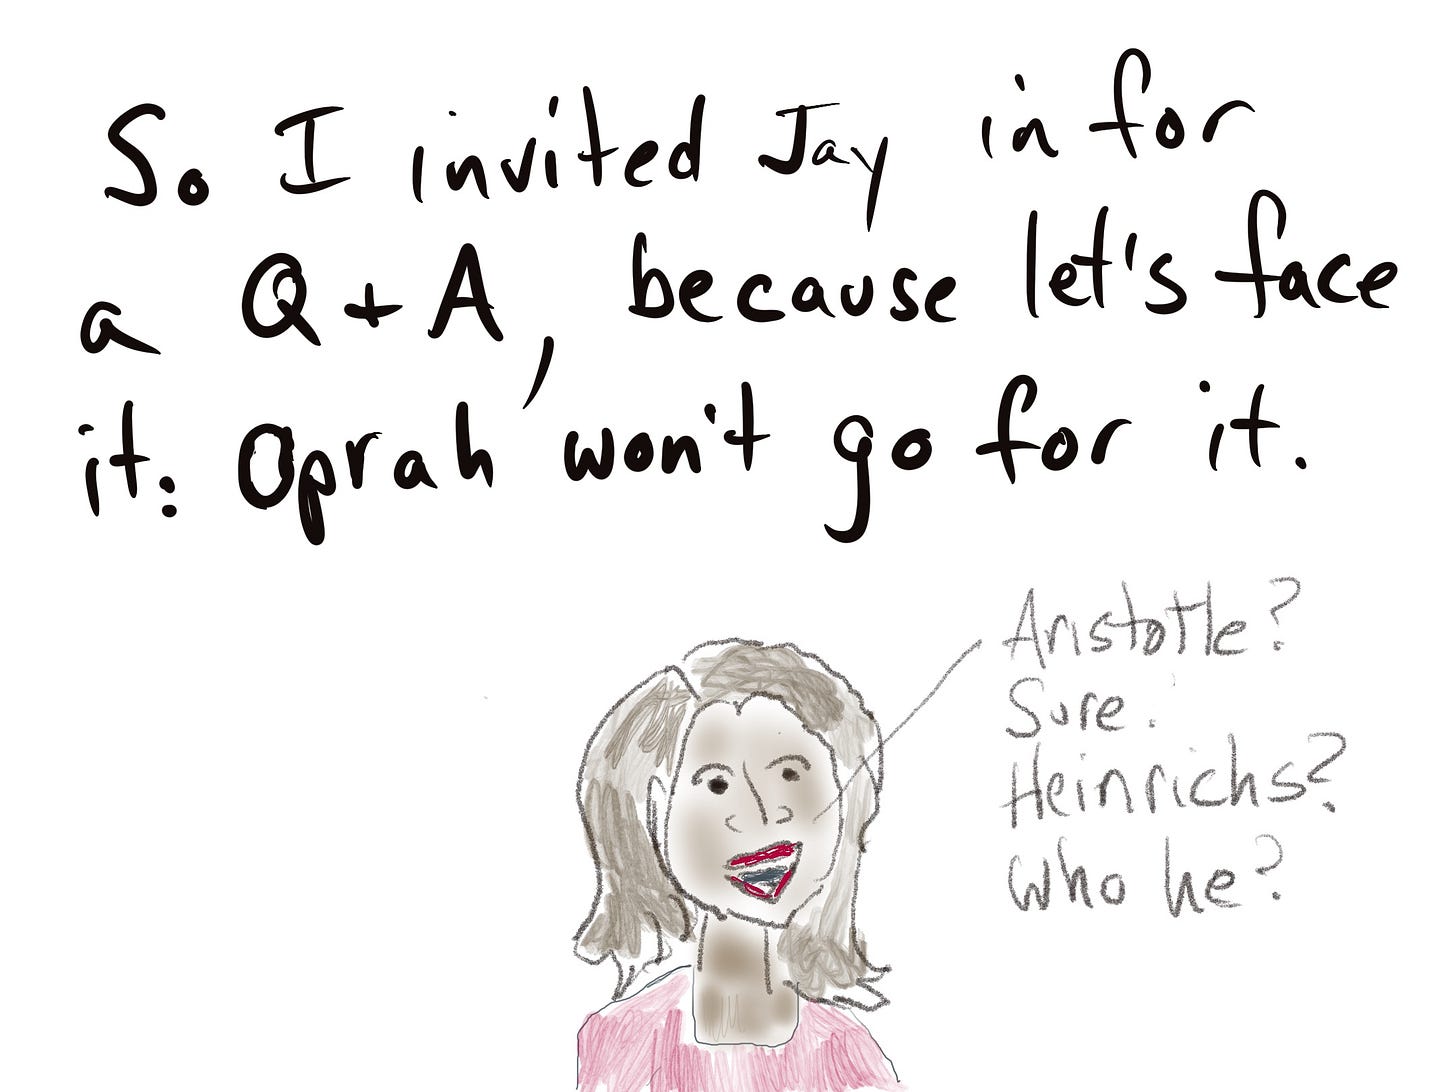 So I invited Jay in for
a Q + A, because let's face
it: Oprah won't go for it.
Aristotle?
Sure.
Heinrichs?
Who he?